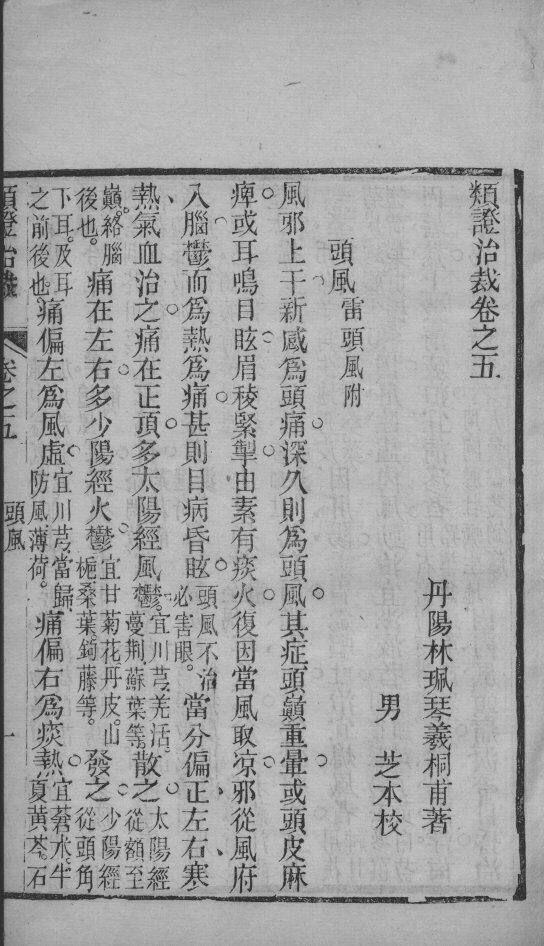 類證治裁卷之五
丹陽林珮琴羲桐甫著
男 芝本校
頭風 雷頭風附
風邪上干新感爲頭痛深久則爲頭風其症頭巔重暈或頭皮麻
痺或耳鳴目眩眉稜緊掣由素有痰火復因當風取凉邪從風府
入腦鬱而爲熱爲痛甚則目病昏眩 頭風不治必害眼。 當分偏正左右寒
熱氣血治之痛在正頂多太陽經風鬱 宜川芎。羌活。蔓荆。蘇葉等。 散之 太陽經從額至
巔。絡腦後也。 痛在左右多少陽經火鬱 宜甘菊花丹皮。山梔桑葉。鉤藤等。 發之 少陽經從頭角
下耳。及耳之前後也。 痛偏左爲風虛 宜川芎。當歸。防風。薄荷。 痛偏右爲痰熱 宜蒼朮。半夏黃芩。石
類證治裁 卷之五 頭風 一